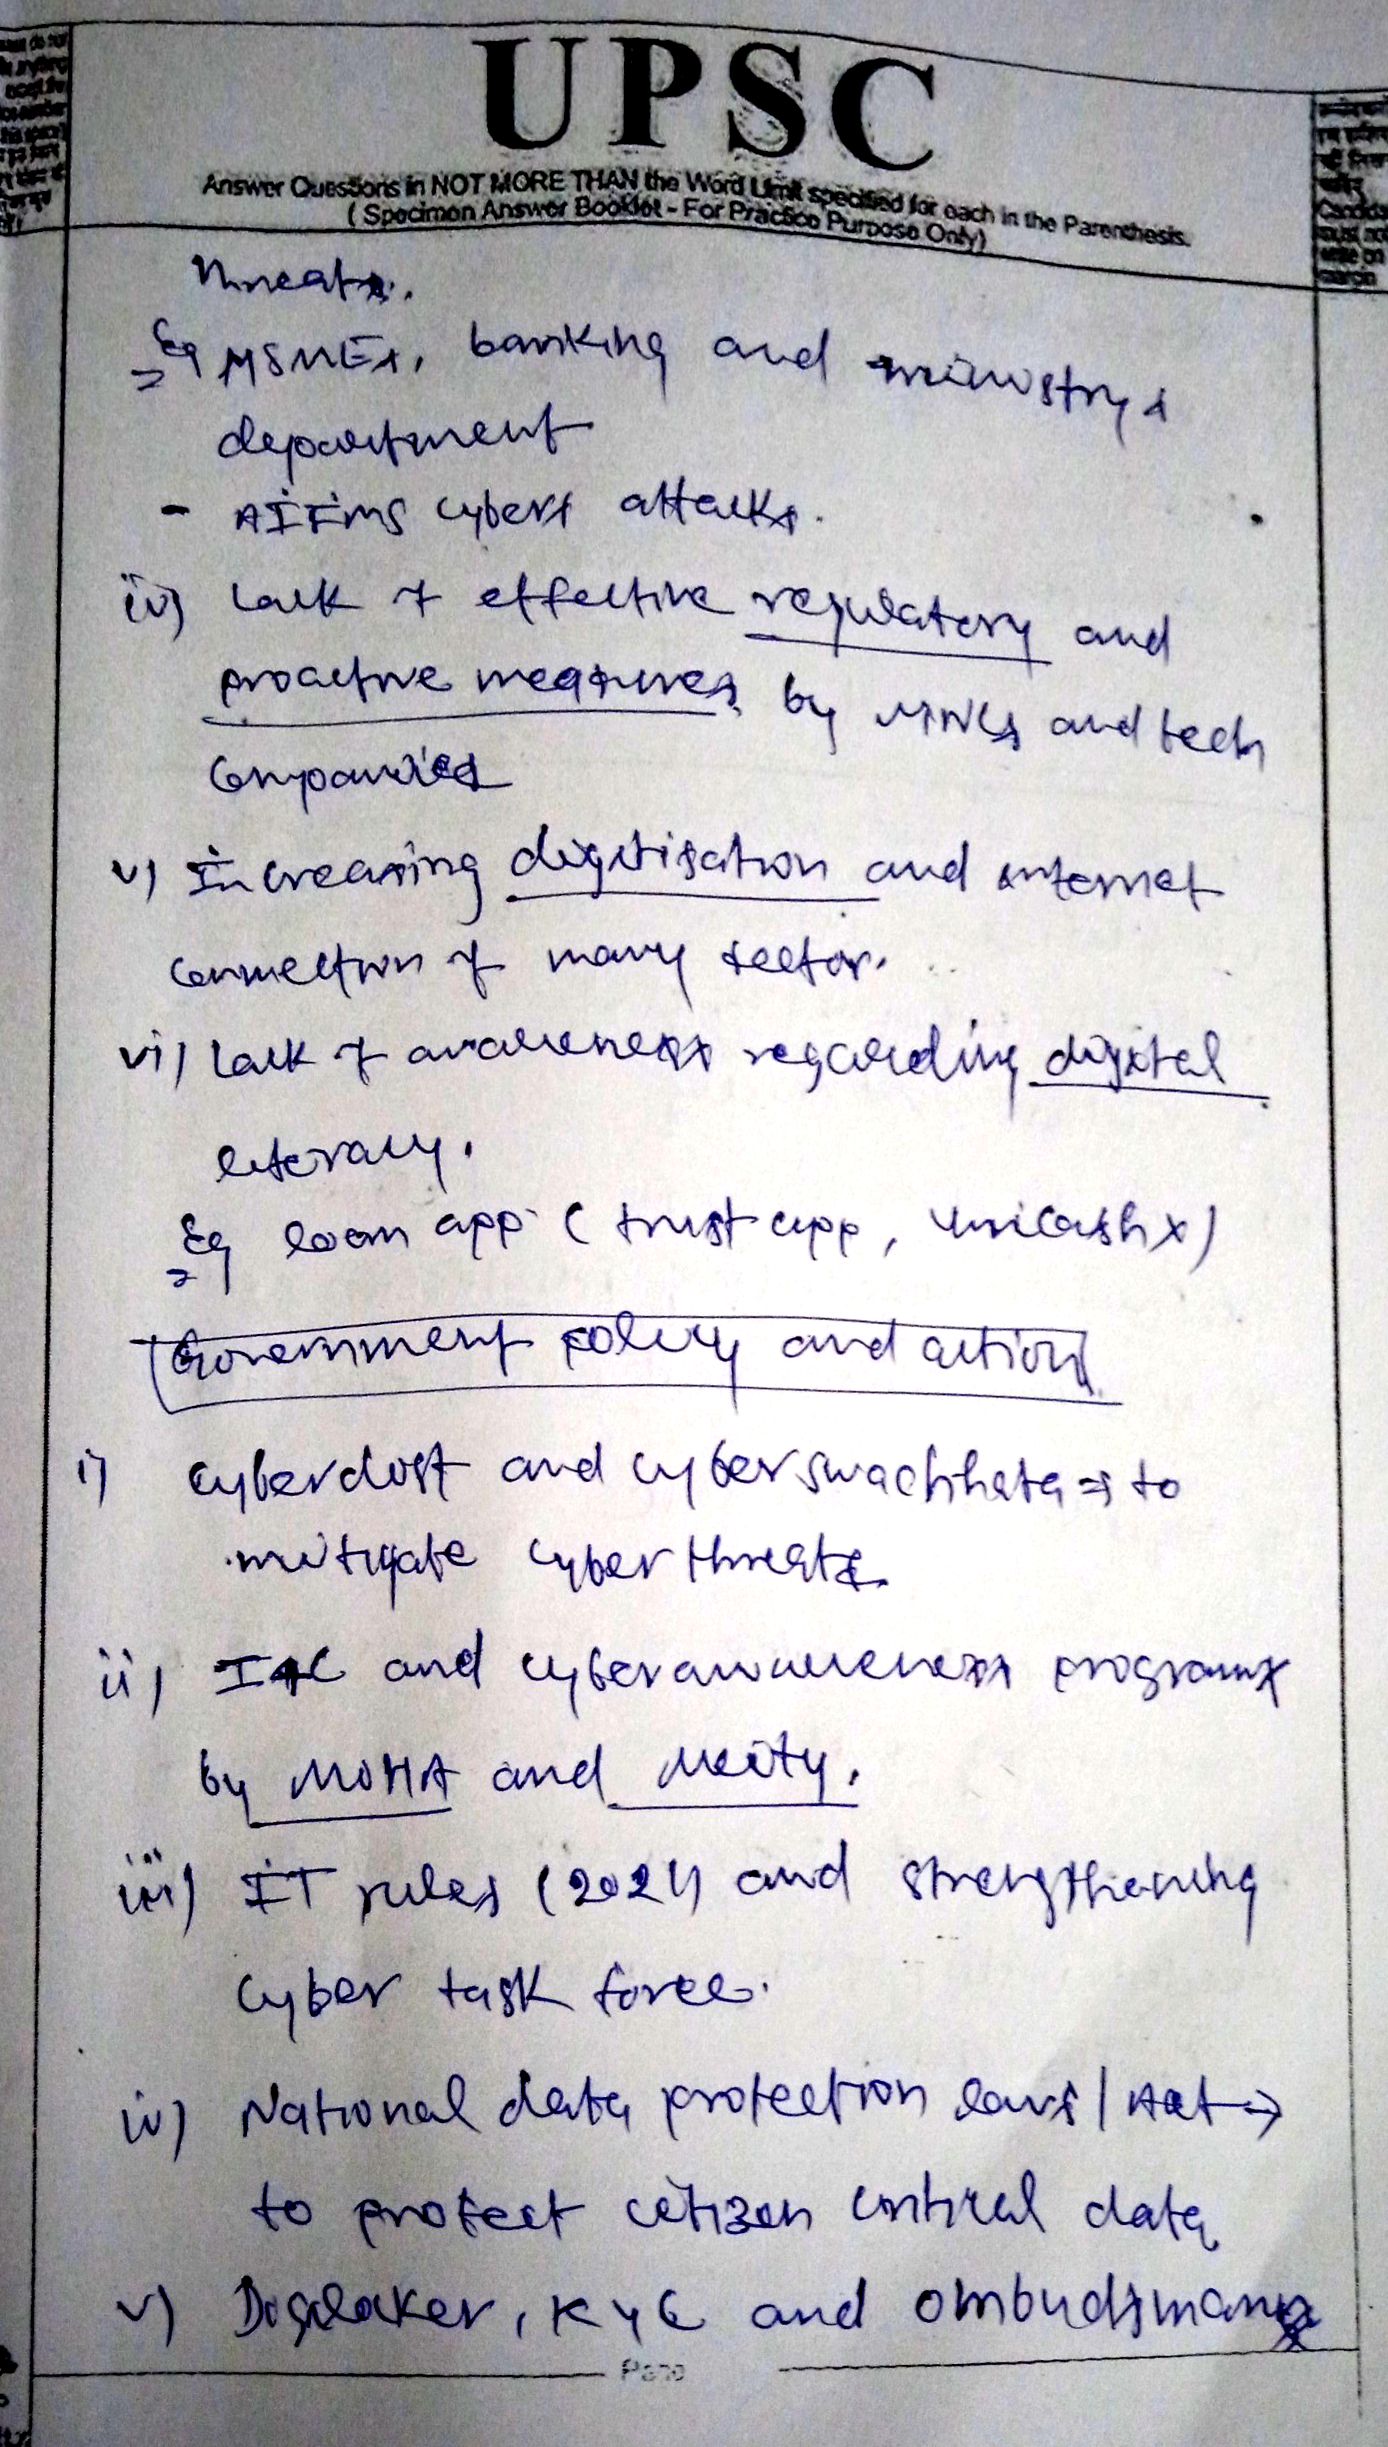 UPSC
Answer Questions in NOT MORE THAN the Word Limit specified for each in the Parenthesis.
( Specimen Answer Booklet - For Practice Purpose Only)
Candida
must not
write on
margin
threats.
Eg MSMEs, banking and ministrys
department
- AIIMS cyber attacks.
iv) Lack of effective regulatory and
proactive measures by MNCs and tech
companies
v) Increasing digitisation and internet
connection of many sector.
vi) Lack of awareness regarding digital
literacy.
Eg loan app (trust app, unicash)
Government policy and action
i) cyberdost and cyber swachhata ⇒ to
mitigate cyber threats.
ii) I4C and cyber awareness programs
by MOHA and Meity.
iii) IT rules (2021) and strengthening
cyber task force.
iv) National data protection laws / Act →
to protect citizen critical data
v) Digilaker, KYC and ombudsman
Page